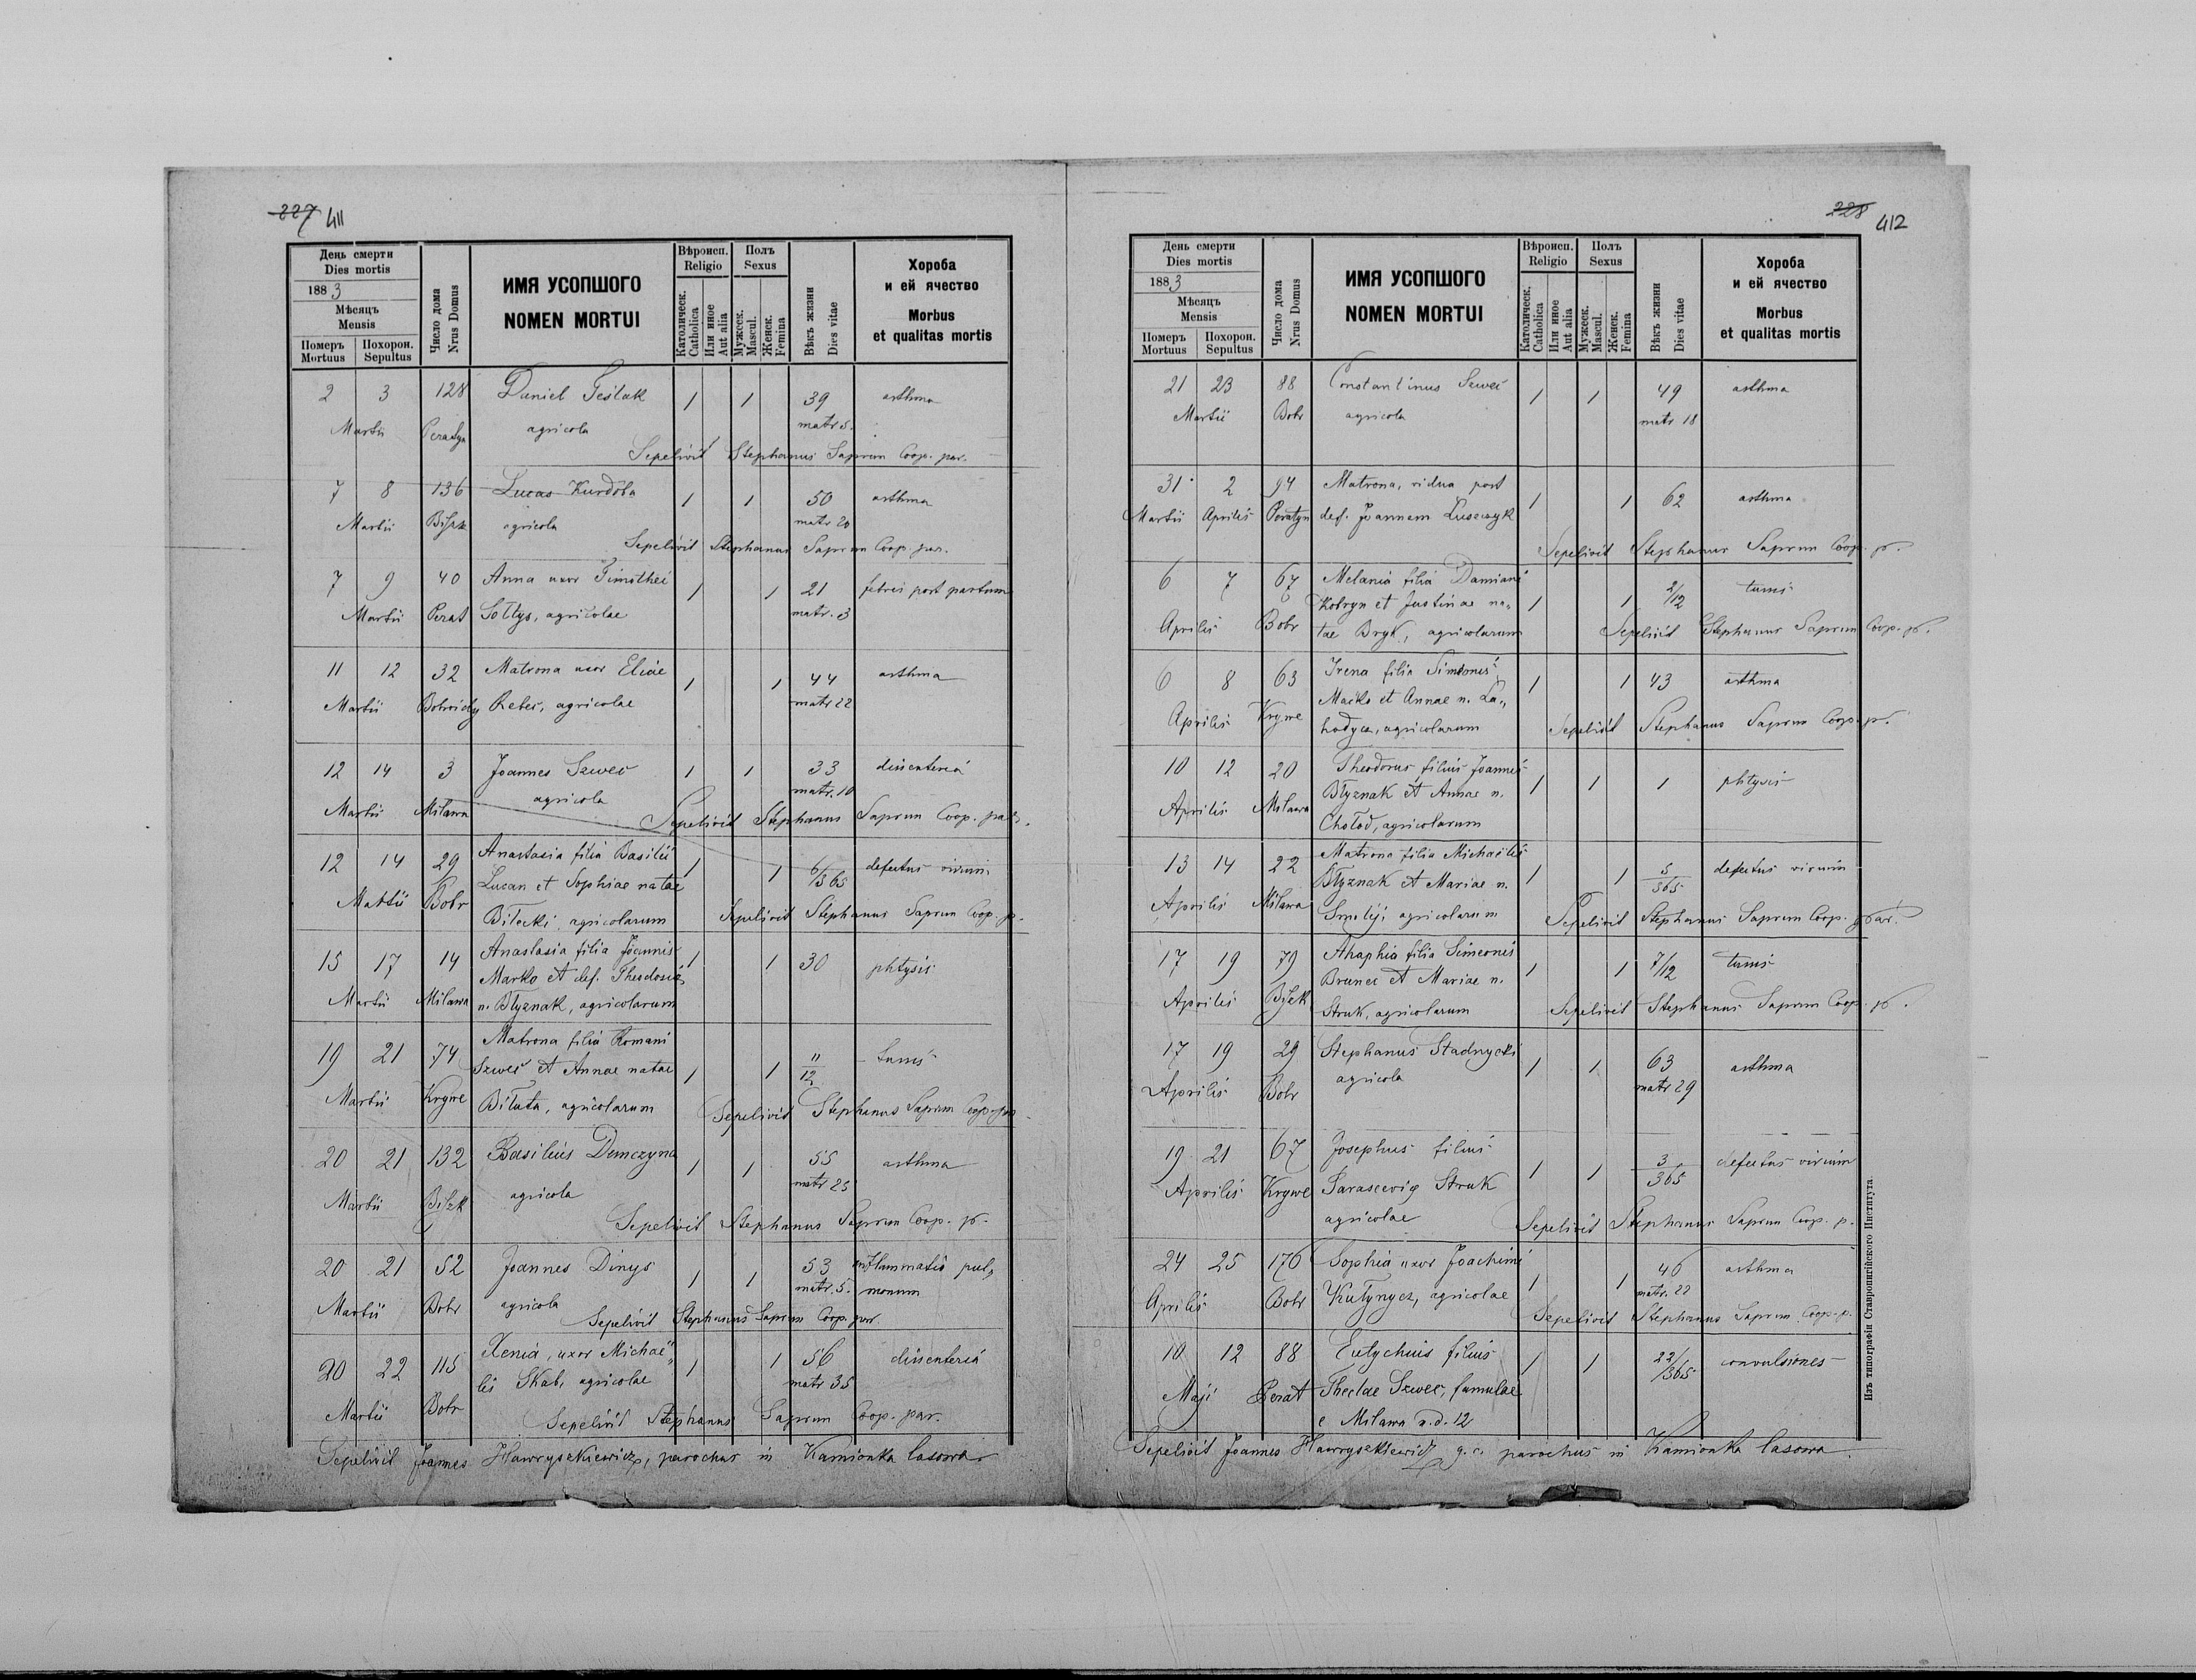 227 411
День смерти
Dies mortis
1883
Мѣсяцъ
Mensis
Померъ
Mortuus
Похорон.
Sepultus
Число дома
Nrus Domus
ИМЯ УСОПШОГО
NOMEN MORTUI
Вѣроисп.
Religio
Католическ.
Catholica
Или иное
Aut alia
Полъ
Sexus
Мужеск.
Mascul.
Женск.
Femina
Вѣкъ жизни
Dies vitae
Хороба
и ей ячество
Morbus
et qualitas mortis
2 3 128 Daniel Teślak 1 1 39 asthma
Martii Peratyn agricola matr 5.
Sepelivit Stephanus Saprun Coop. par.
7 8 136 Lucas Kurdoba 1 1 50 asthma
Martii agricola matr 20
Sepelivit Stephanus Saprun Coop. par.
7 9 40 Anna uxor Timothei 1 1 21 febris post partum
Martii Perat Sołtys, agricolae matr. 3
11 12 32 Matrona uxor Eliae 1 1 44 asthma
Martii agricolae matr 22
12 14 3 Joannes Szwec 1 1 33 dissenteria
Martii Milawa agricola matr. 10
Sepelivit Stephanus Saprun Coop. par.
12 14 29 Anastasia filia Basilii 1 1 6/365 defectus virium
Martii Bobr Lucan et Sophiae natae
Biłecki agricolarum Sepelivit Stephanus Saprun Coop. p.
15 17 14 Anastasia filia Joannis 1 1 30 phtysis
Marko et def. Theodosiae
Martii Milawa n. Błyznak, agricolarum
19 21 74 Matrona filia Romani 1 1 11/12 tussis
Szwec et Annae natae
Martii Krywe Biłuta, agricolarum Sepelivit Stephanus Saprun Coop. par
20 21 132 Basilius Demczyna 1 1 55 asthma
Martii agricola matr 25
Sepelivit Stephanus Saprun Coop. p.
20 21 52 Joannes Dinys 1 1 53 inflammatio pul„
Martii Bobr agricola matr. 5. monum
Sepelivit Stephanus Saprun Coop. par.
20 22 115 Xenia, uxor Michaë„ 1 1 56 dissenteria
lis Skab, agricolae matr 35
Martii Bobr Sepelivit Stephanus Saprun Coop. par.
Sepelivit Joannes Hawryszkiewicz, parochus in Kamionka lasowa
228 412
День смерти
Dies mortis
1883
Мѣсяцъ
Mensis
Померъ
Mortuus
Похорон.
Sepultus
Число дома
Nrus Domus
ИМЯ УСОПШОГО
NOMEN MORTUI
Вѣроисп.
Religio
Католическ.
Catholica
Или иное
Aut alia
Полъ
Sexus
Мужеск.
Mascul.
Женск.
Femina
Вѣкъ жизни
Dies vitae
Хороба
и ей ячество
Morbus
et qualitas mortis
21 23 88 Constantinus Szwec 1 1 49 asthma
Martii Bobr agricola matr 18
31 2 94 Matrona, vidua post 1 1 62 asthma
Martii Aprilis Peratyn def. Joannem Łuszczyk
Sepelivit Stephanus Saprun Coop. p.
6 7 67 Melania filia Damiani 1 1 2/12 tussis
Kobryn et Justinae na„
Aprilis Bobr tae Bryk, agricolarum Sepelivit Stephanus Saprun Coop. p.
6 8 63 Irena filia Simeonis 1 1 43 asthma
Maćko et Annae n. La„
Aprilis Krywe hodycz, agricolarum Sepelivit Stephanus Saprun Coop. p.
10 12 20 Theodorus filius Joannis 1 1 1 phtysis
Błyznak et Annae n.
Aprilis Milawa Chołod, agricolarum
13 14 22 Matrona filia Michaëlis 1 1 5/365 defectus virium
Błyznak et Mariae n.
Aprilis Milawa Smolij, agricolarum Sepelivit Stephanus Saprun Coop. par.
17 19 79 Ahaphia filia Simeonis 1 1 7/12 tussis
Bruner et Mariae n.
Aprilis Struk, agricolarum Sepelivit Stephanus Saprun Coop. p.
17 19 29 Stephanus Stadnycki 1 1 63 asthma
Aprilis Bobr agricola matr 29
19 21 67 Josephus filius 1 1 3/365 defectus virium
Aprilis Krywe Parasceviae Struk
agricolae Sepelivit Stephanus Saprun Coop. p.
24 25 176 Sophia uxor Joachimi 1 1 46 asthma
Aprilis Bobr Kułynycz, agricolae matr. 22
Sepelivit Stephanus Saprun Coop. p.
10 12 88 Eutychius filius 1 1 22/365 convulsiones
Maji Perat Theclae Szwec, famulae
e Milawa n.d. 12
Sepelivit Joannes Hawryszkiewicz g. c. parochus in Kamionka lasowa
Изъ типографіи Ставропигійского Института.